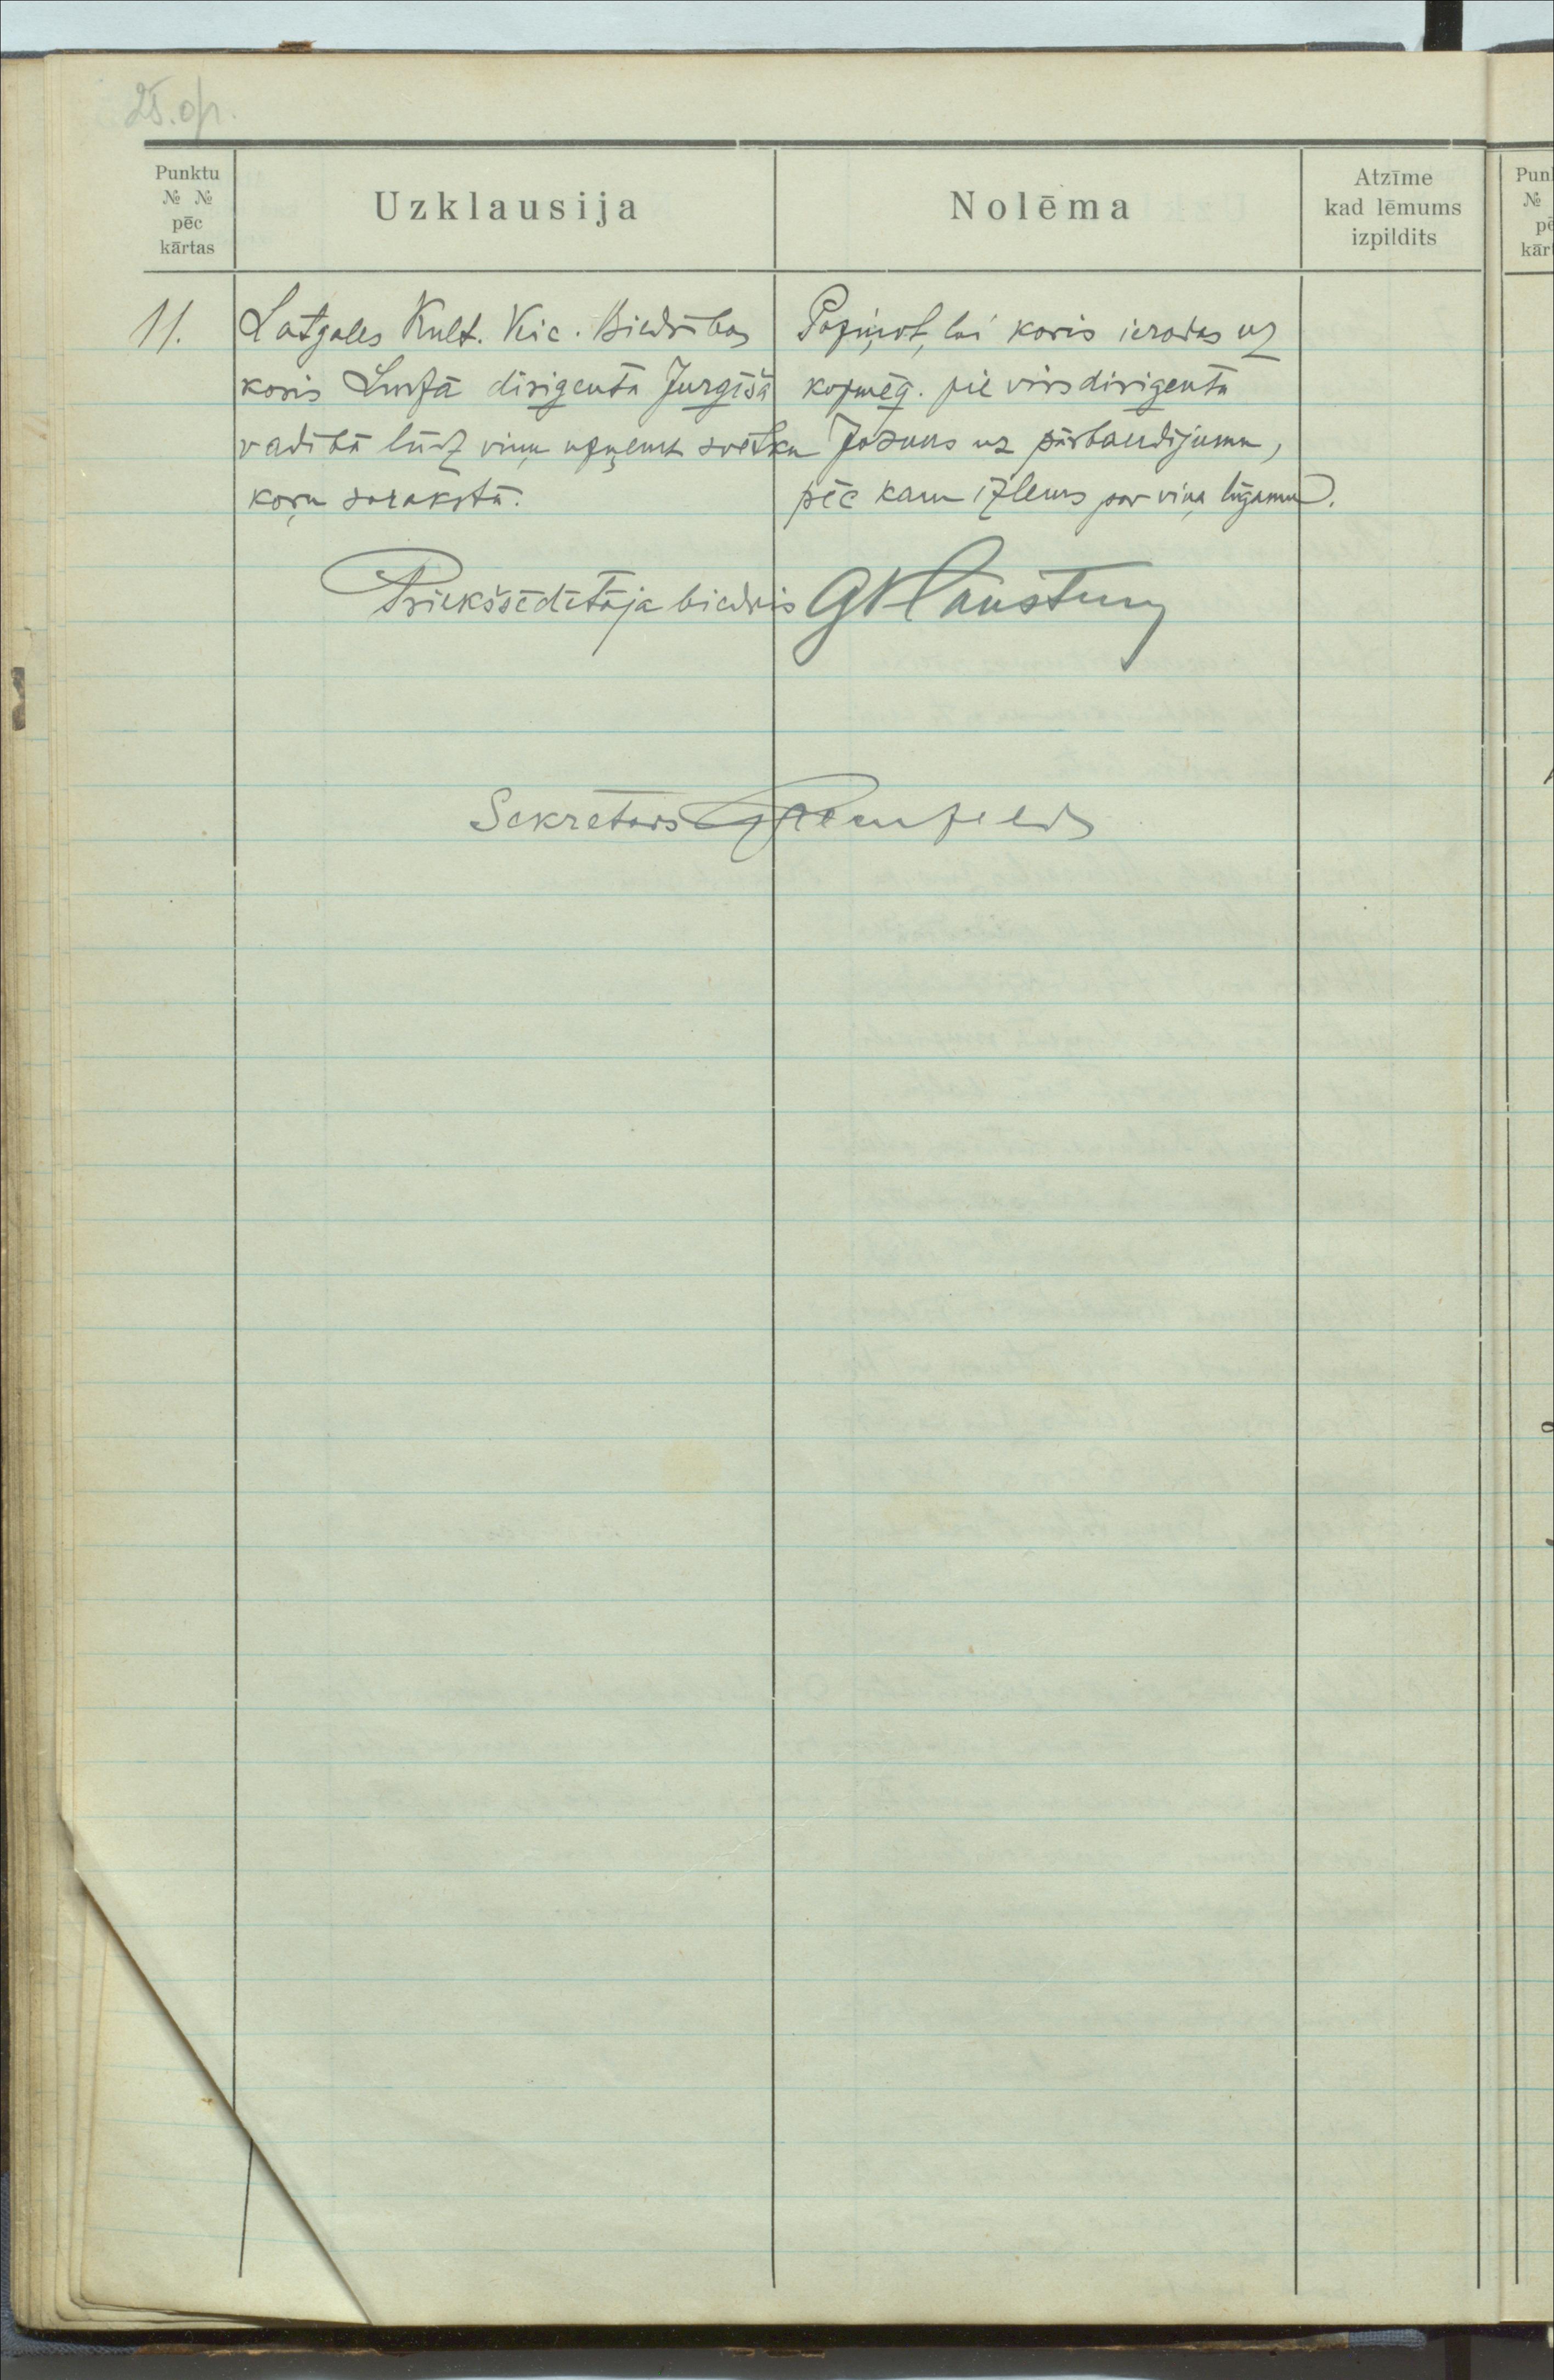 25.op.
Punktu
№ №
pēc
kārtas
Uzklausija
Nolēma
Atzīme
kad lēmums
izpildits
11.
Latgales Kult. Vic. Biedrības
koris Ludzā diriģenta Jurgīša
vadībā lūdz viņu uzņemt svētku
koŗu sarakstā.
Paziņot, lai koris ierodas uz
kopmēģ. pie virsdiriģenta
Jozuus uz pārbaudījumu,
pēc kam izlems par viņa lūgumu.
Priekšsēdētāja biedris
Sekretars